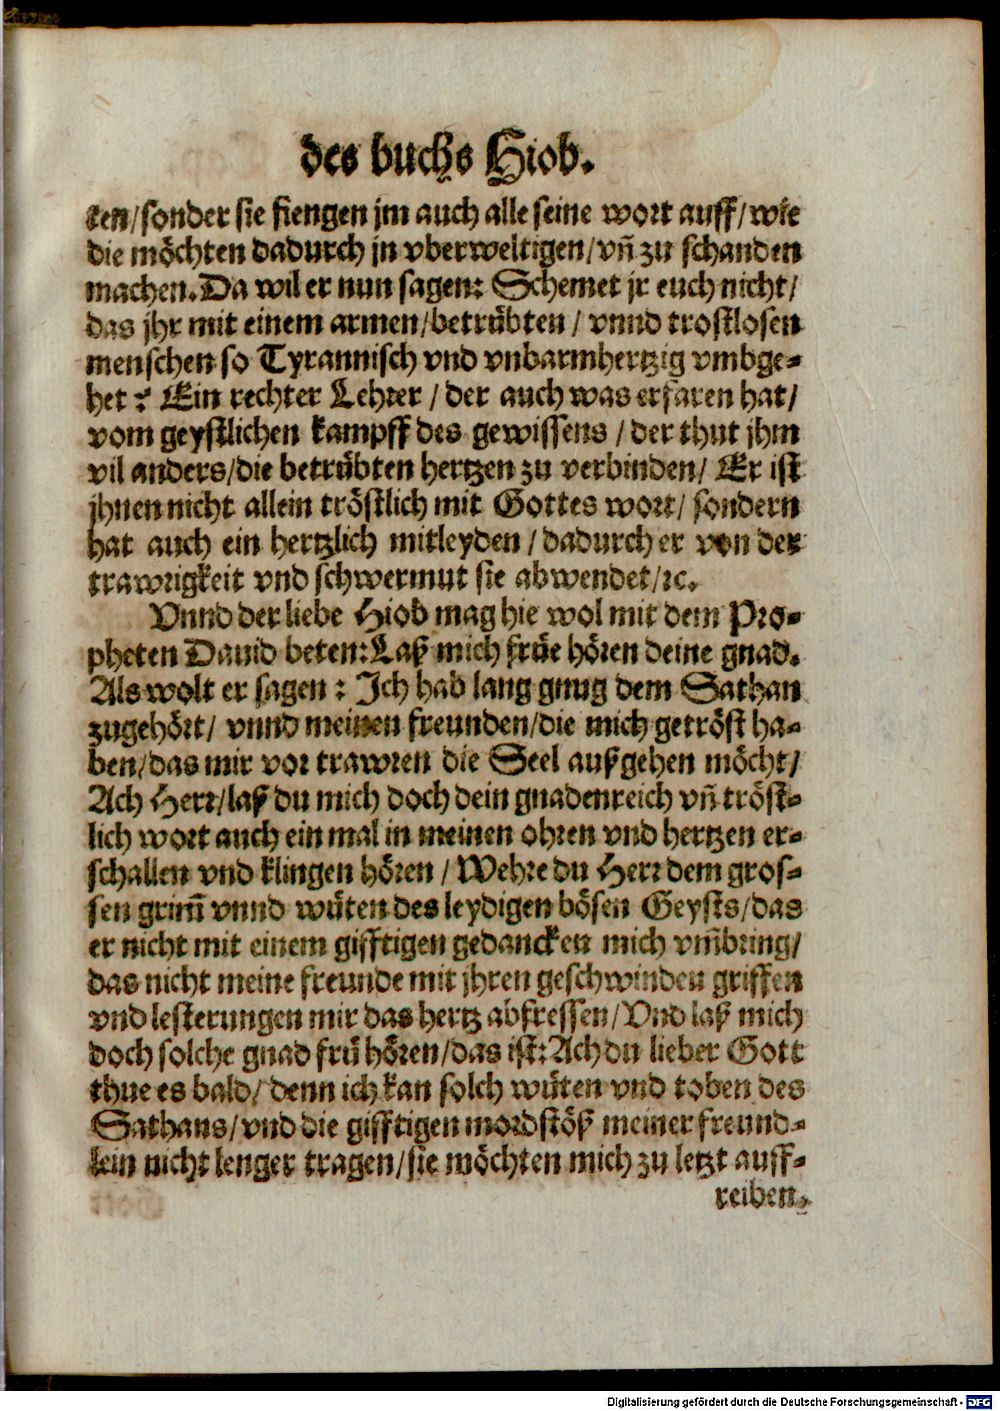 des buchs Hiob.
ten/sonder sie fiengen jm auch alle seine wort auff/wie
die möchten dadurch jn vberweltigen/vñ zu schanden
machen. Da wil er nun sagen: Schemet jr euch nicht/
das jhr mit einem armen/betrübten / vnnd trostlosen
menschen so Tyrannisch vnd vnbarmhertzig vmbge-
het? Ein rechter Lehrer / der auch was erfaren hat/
vom geystlichen kampff des gewissens / der thut jhm
vil anders/die betrübten hertzen zu verbinden/ Er ist
jhnen nicht allein tröstlich mit Gottes wort/ sondern
hat auch ein hertzlich mitleyden / dadurch er von der
trawrigkeit vnd schwermut sie abwendet/ꝛc.
Vnnd der liebe Hiob mag hie wol mit dem Pro-
pheten Dauid beten: Laß mich früe hören deine gnad.
Als wolt er sagen: Ich hab lang gnug dem Sathan
zugehört/ vnnd meinen freunden/die mich getröst ha-
ben/das mir vor trawren die Seel außgehen möcht/
Ach Herr/laß du mich doch dein gnadenreich vñ tröst-
lich wort auch ein mal in meinen ohren vnd hertzen er-
schallen vnd klingen hören / Wehre du Herr dem gros-
sen grim̃ vnnd wüten des leydigen bösen Geysts/das
er nicht mit einem gifftigen gedancken mich vm̃bring/
das nicht meine freunde mit jhren geschwinden griffen
vnd lesterungen mir das hertz abfressen/Vnd laß mich
doch solche gnad frü hören/das ist: Ach du lieber Gott
thue es bald/ denn ich kan solch wüten vnd toben des
Sathans/vnd die gifftigen mordstöß meiner freund-
lein nicht lenger tragen/sie möchten mich zu letzt auff-
reiben.
Digitalisierung gefördert durch die Deutsche Forschungsgemeinschaft - DFG